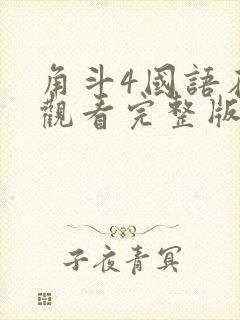 角斗4国語
觀看完整版
子夜青冥